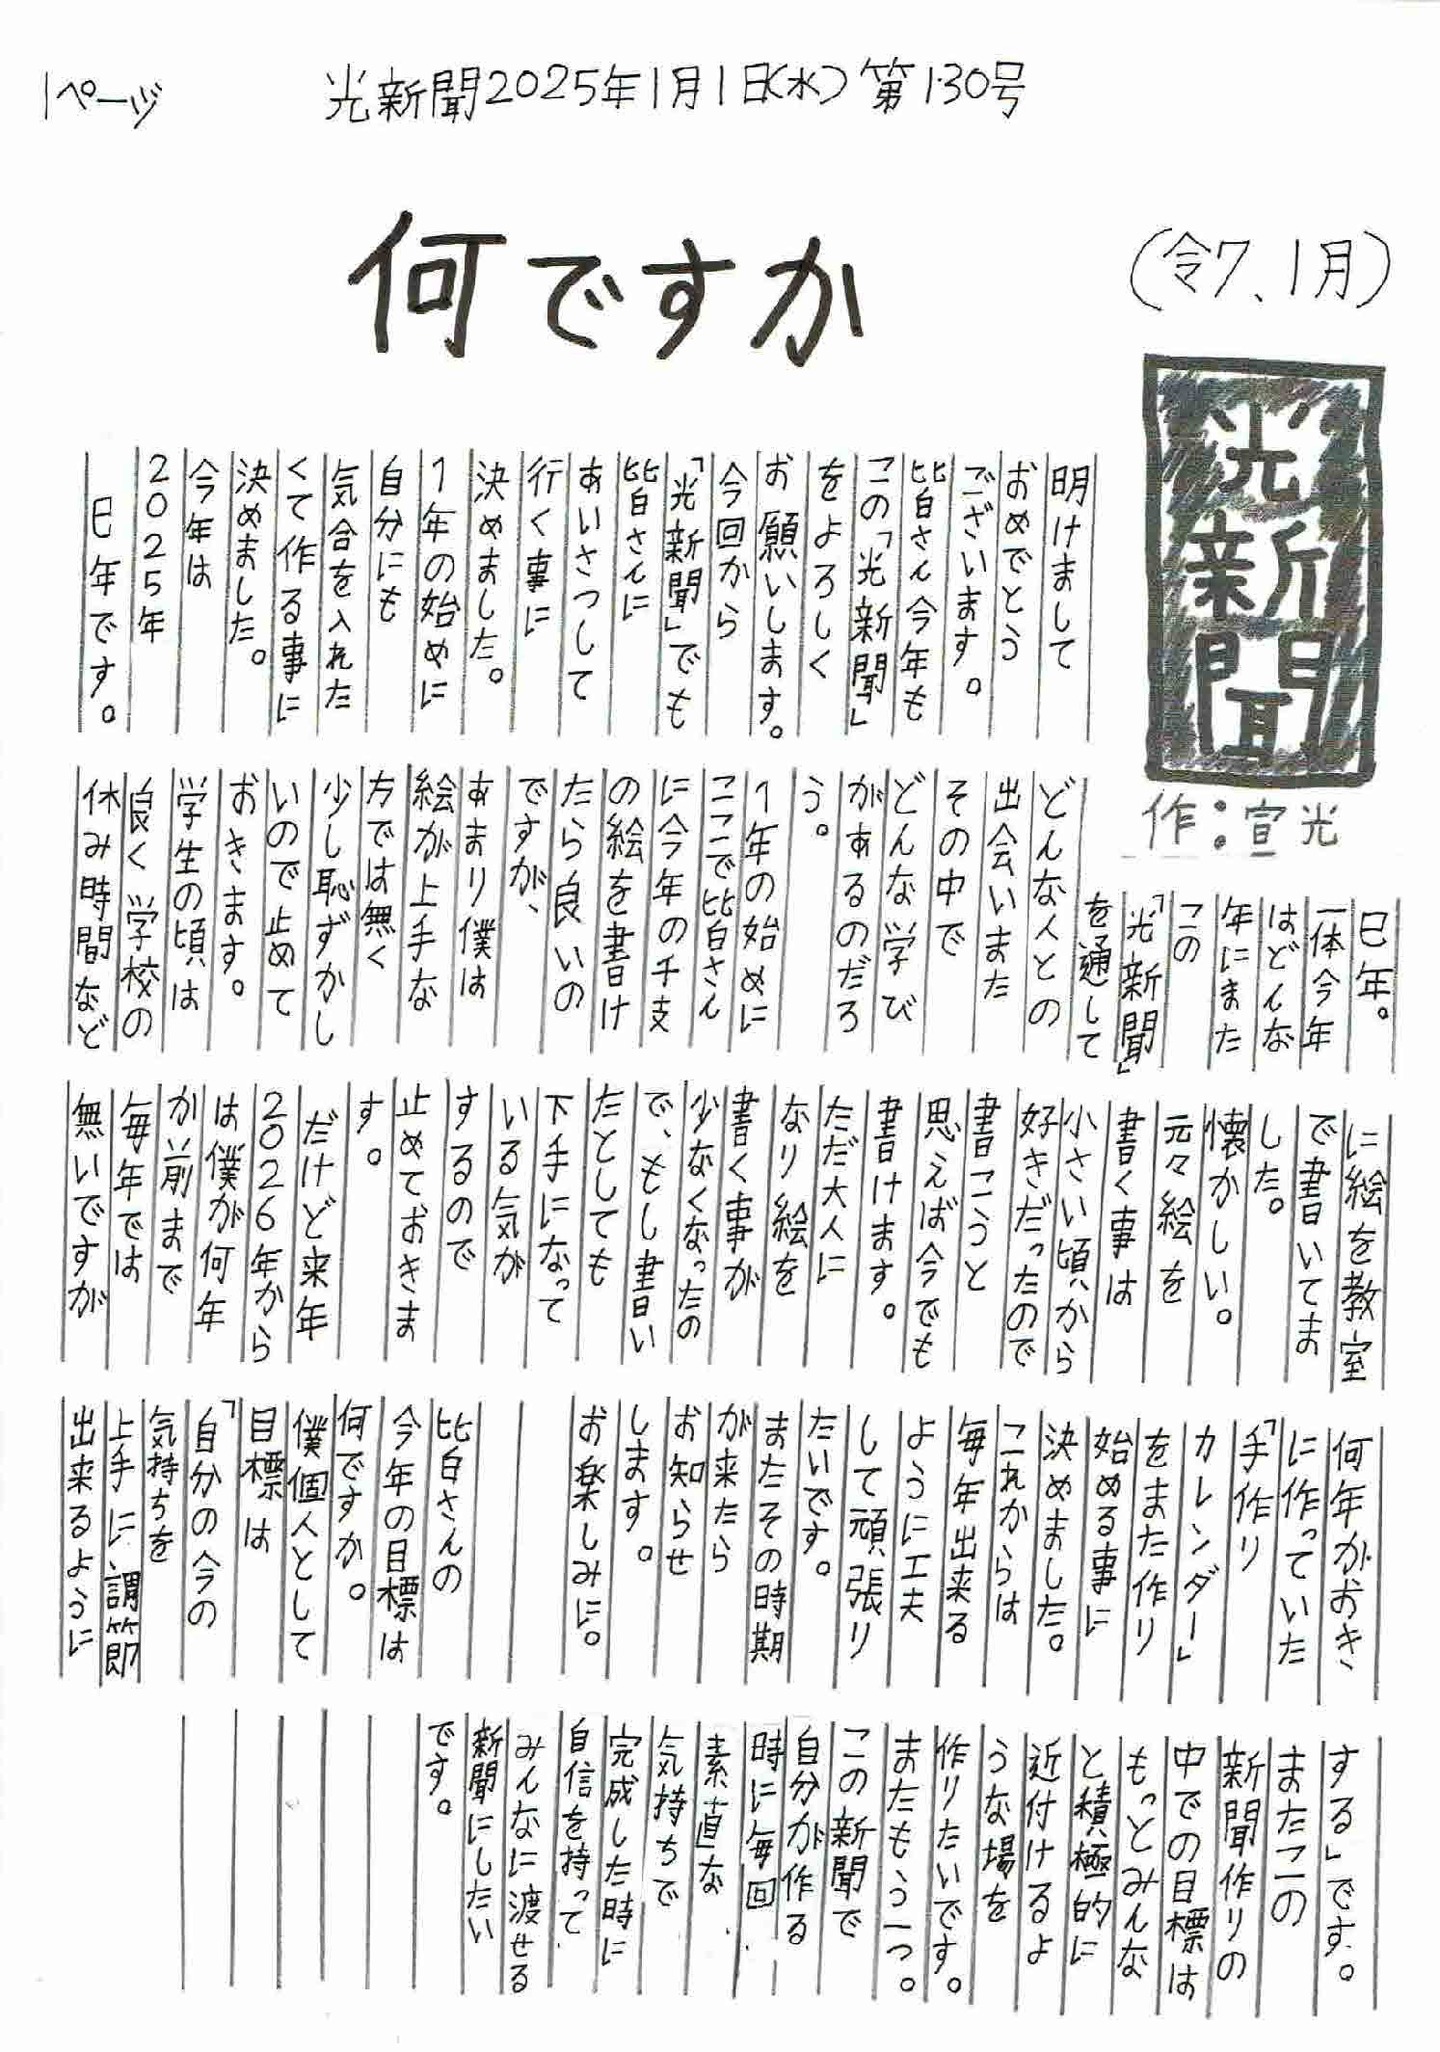 1ページ
光新聞2025年1月1日(水)第130号
何ですか
(令7、1月)
光新聞
作:宣光
明けまして
おめでとう
ございます。
皆さん今年も
この「光新聞」
をよろしく
お願いします。
今回から
「光新聞」でも
皆さんに
あいさつして
行く事に
決めました。
1年の始めに
自分にも
気合を入れた
くて作る事に
決めました。
今年は
2025年
巳年です。
巳年。
一体今年
はどんな
年にまた
この
「光新聞」
を通して
どんな人との
出会いまた
その中で
どんな学び
があるのだろ
う。
1年の始めに
ここで皆さん
に今年の干支
の絵を書け
たら良いの
ですが、
あまり僕は
絵が上手な
方では無く
少し恥ずかし
いので止めて
おきます。
学生の頃は
良く学校の
休み時間など
に絵を教室
で書いてま
した。
懐かしい。
元々絵を
書く事は
小さい頃から
好きだったので
書こうと
思えば今でも
書けます。
ただ大人に
なり絵を
書く事が
少なくなったの
で、もし書い
たとしても
下手になって
いる気が
するので
止めておきま
す。
だけど来年
2026年から
は僕が何年
か前まで
毎年では
無いですが
何年かおき
に作っていた
「手作り
カレンダー」
をまた作り
始める事に
決めました。
これからは
毎年出来る
ように工夫
して頑張り
たいです。
またその時期
が来たら
お知らせ
します。
お楽しみに。
皆さんの
今年の目標は
何ですか。
僕個人として
目標は
「自分の今の
気持ちを
上手に調節
出来るように
する」です。
またこの
新聞作りの
中での目標は
もっとみんな
と積極的に
近付けるよ
うな場を
作りたいです。
またもう一つ。
この新聞で
自分が作る
時に毎回
素直な
気持ちで
完成した時に
自信を持って
みんなに渡せる
新聞にしたい
です。